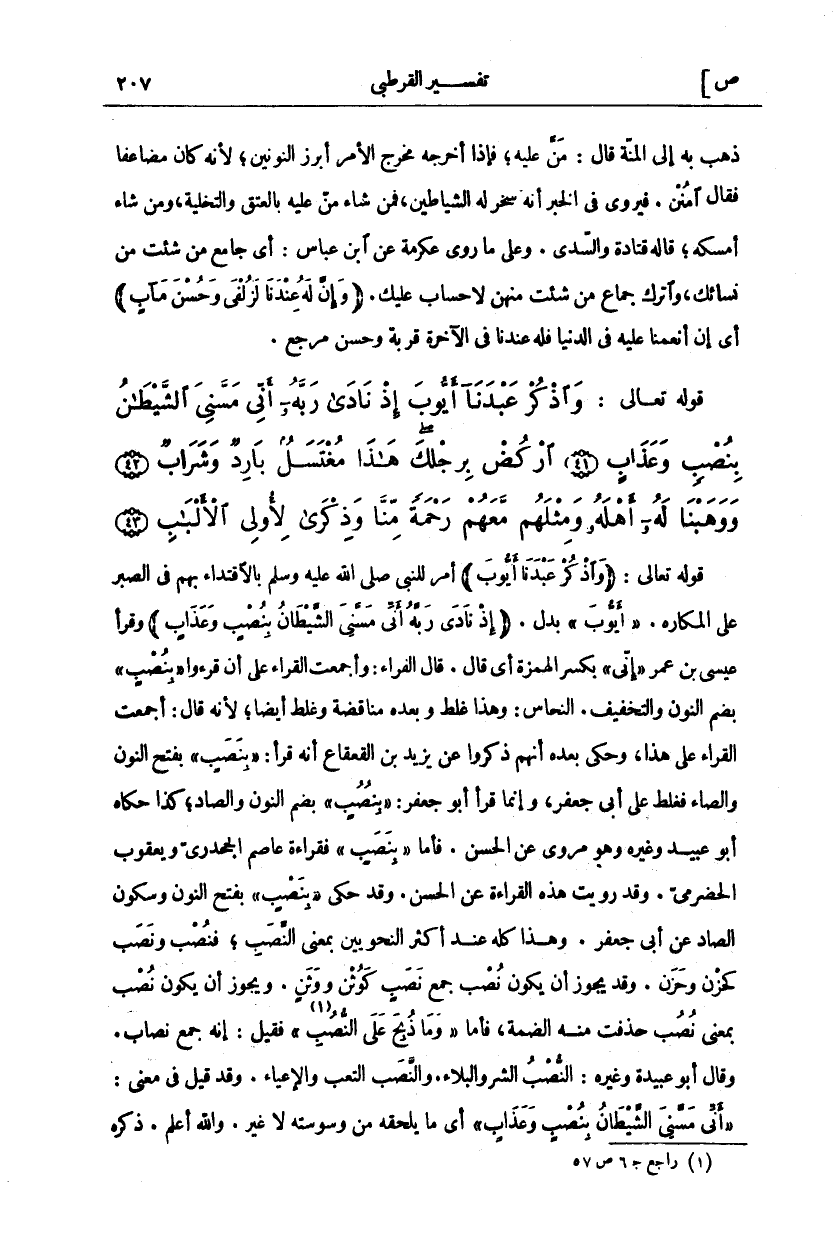 ص ] تفسير القرطبى ٢٠٧
ذهب به إلى المنّة قال : مَنَّ عليه؛ فإذا أخرجه مخرج الأمر أبرز النونين؛ لأنه كان مضاعفا
فقال ٱمْنُن . فيروى فى الخبر أنه سخر له الشياطين، فمن شاء منّ عليه بالعتق والتخلية، ومن شاء
أمسكه؛ قاله قتادة والسّدى . وعلى ما روى عكرمة عن ٱبن عباس : أى جامع من شئت من
نسائك، وٱترك جماع من شئت منهن لا حساب عليك. ﴿ وَإِنَّ لَهُ عِنْدَنَا لَزُلْفَى وَحُسْنَ مَآبٍ ﴾
أى إن أنعمنا عليه فى الدنيا فله عندنا فى الآخرة قربة وحسن مرجع .
قوله تعالى : وَٱذْكُرْ عَبْدَنَآ أَيُّوبَ إِذْ نَادَىٰ رَبَّهُۥٓ أَنِّى مَسَّنِىَ ٱلشَّيْطَـٰنُ
بِنُصْبٍ وَعَذَابٍ (٤١) ٱرْكُضْ بِرِجْلِكَ هَـٰذَا مُغْتَسَلُۢ بَارِدٌ وَشَرَابٌ (٤٢)
وَوَهَبْنَا لَهُۥٓ أَهْلَهُۥ وَمِثْلَهُم مَّعَهُمْ رَحْمَةً مِّنَّا وَذِكْرَىٰ لِأُولِى ٱلْأَلْبَـٰبِ (٤٣)
قوله تعالى : ﴿ وَٱذْكُرْ عَبْدَنَا أَيُّوبَ ﴾ أمر للنبى صلى الله عليه وسلم بالٱقتداء بهم فى الصبر
على المكاره . « أَيُّوبَ » بدل . ﴿ إِذْ نَادَى رَبَّهُ أَنِّى مَسَّنِىَ الشَّيْطَانُ بِنُصْبٍ وَعَذَابٍ ﴾ وقرأ
عيسى بن عمر «إِنِّى» بكسر الهمزة أى قال . قال الفراء : وأجمعت القراء على أن قرءوا «بِنُصْبٍ»
بضم النون والتخفيف. النحاس : وهذا غلط و بعده مناقضة وغلط أيضا؛ لأنه قال : أجمعت
القراء على هذا، وحكى بعده أنهم ذكروا عن يزيد بن القعقاع أنه قرأ : «بِنَصَبٍ» بفتح النون
والصاد فغلط على أبى جعفر، و إنما قرأ أبو جعفر : «بِنُصُبٍ» بضم النون والصاد؛ كذا حكاه
أبو عبيد وغيره وهو مروى عن الحسن . فأما « بِنَصَبٍ » فقراءة عاصم الجحدرىّ و يعقوب
الحضرمىّ . وقد رويت هذه القراءة عن الحسن . وقد حكى «بِنَصْبٍ» بفتح النون وسكون
الصاد عن أبى جعفر . وهذا كله عند أكثر النحويين بمعنى النَّصَبِ ؛ فنُصْب ونَصَب
كَحُزْن وحَزَن . وقد يجوز أن يكون نُصْب جمع نَصَب كَوُثْن و وَثَن . و يجوز أن يكون نُصْب
بمعنى نُصُب حذفت منه الضمة، فأما « وَمَا ذُبِحَ عَلَى النُّصُبِ »(١) فقيل : إنه جمع نصاب .
وقال أبو عبيدة وغيره : النُّصْبُ الشر والبلاء. والنَّصَب التعب والإعياء . وقد قيل فى معنى :
«أَنِّى مَسَّنِىَ الشَّيْطَانُ بِنُصْبٍ وَعَذَابٍ» أى ما يلحقه من وسوسته لا غير . والله أعلم . ذكره
(١) راجع جـ ٦ ص ٥٧